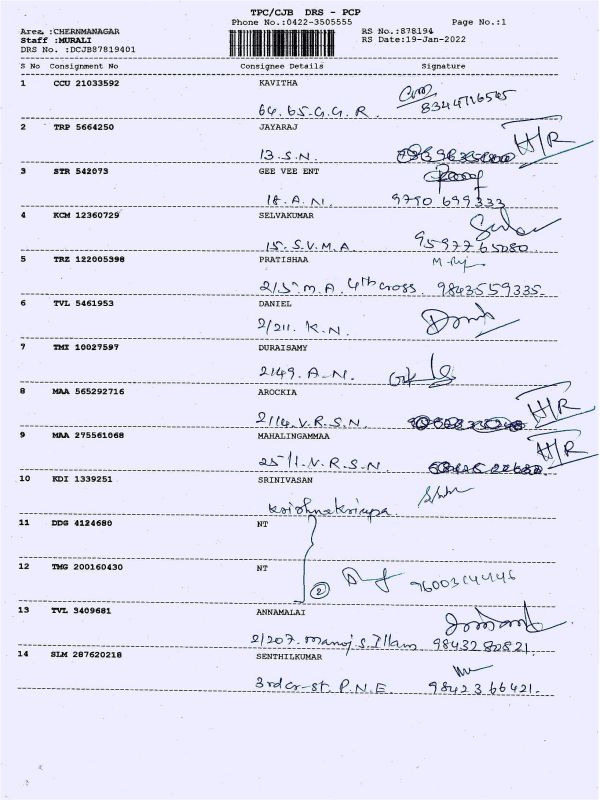 TPC/CJB DRS - PCP
Phone No.:0422-3505555 Page No.:1
Area :CHERNMANAGAR RS No.:878194
Staff :MURALI RS Date:19-Jan-2022
DRS No. :DCJB87819401
S No Consignment No Consignee Details Signature
1 CCU 21033592 KAVITHA
64.65.G.G.R. 8344716545
2 TRP 5664250 JAYARAJ H/R
13.S.N.
3 STR 542073 GEE VEE ENT
18.A.N. 9790 699333
4 KCM 12360729 SELVAKUMAR
15.S.V.M.A. 9597765080
5 TRZ 122005398 PRATISHAA
2/5 M.A. 4th cross. 9843559335
6 TVL 5461953 DANIEL
2/211. K.N.
7 TMI 10027597 DURAISAMY
2149.A.N.
8 MAA 565292716 AROCKIA H/R
2/14.V.R.S.N.
9 MAA 275561068 MAHALINGAMMAA H/R
25/1.V.R.S.N.
10 KDI 1339251 SRINIVASAN
Krishnakriupa
11 DDG 4124680 NT
12 TMG 200160430 NT
2
13 TVL 3409681 ANNAMALAI
2/207. manoj.s.Illam 9843280821.
14 SLM 287620218 SENTHILKUMAR
3rd cr-st. P.N.E. 9842366421.